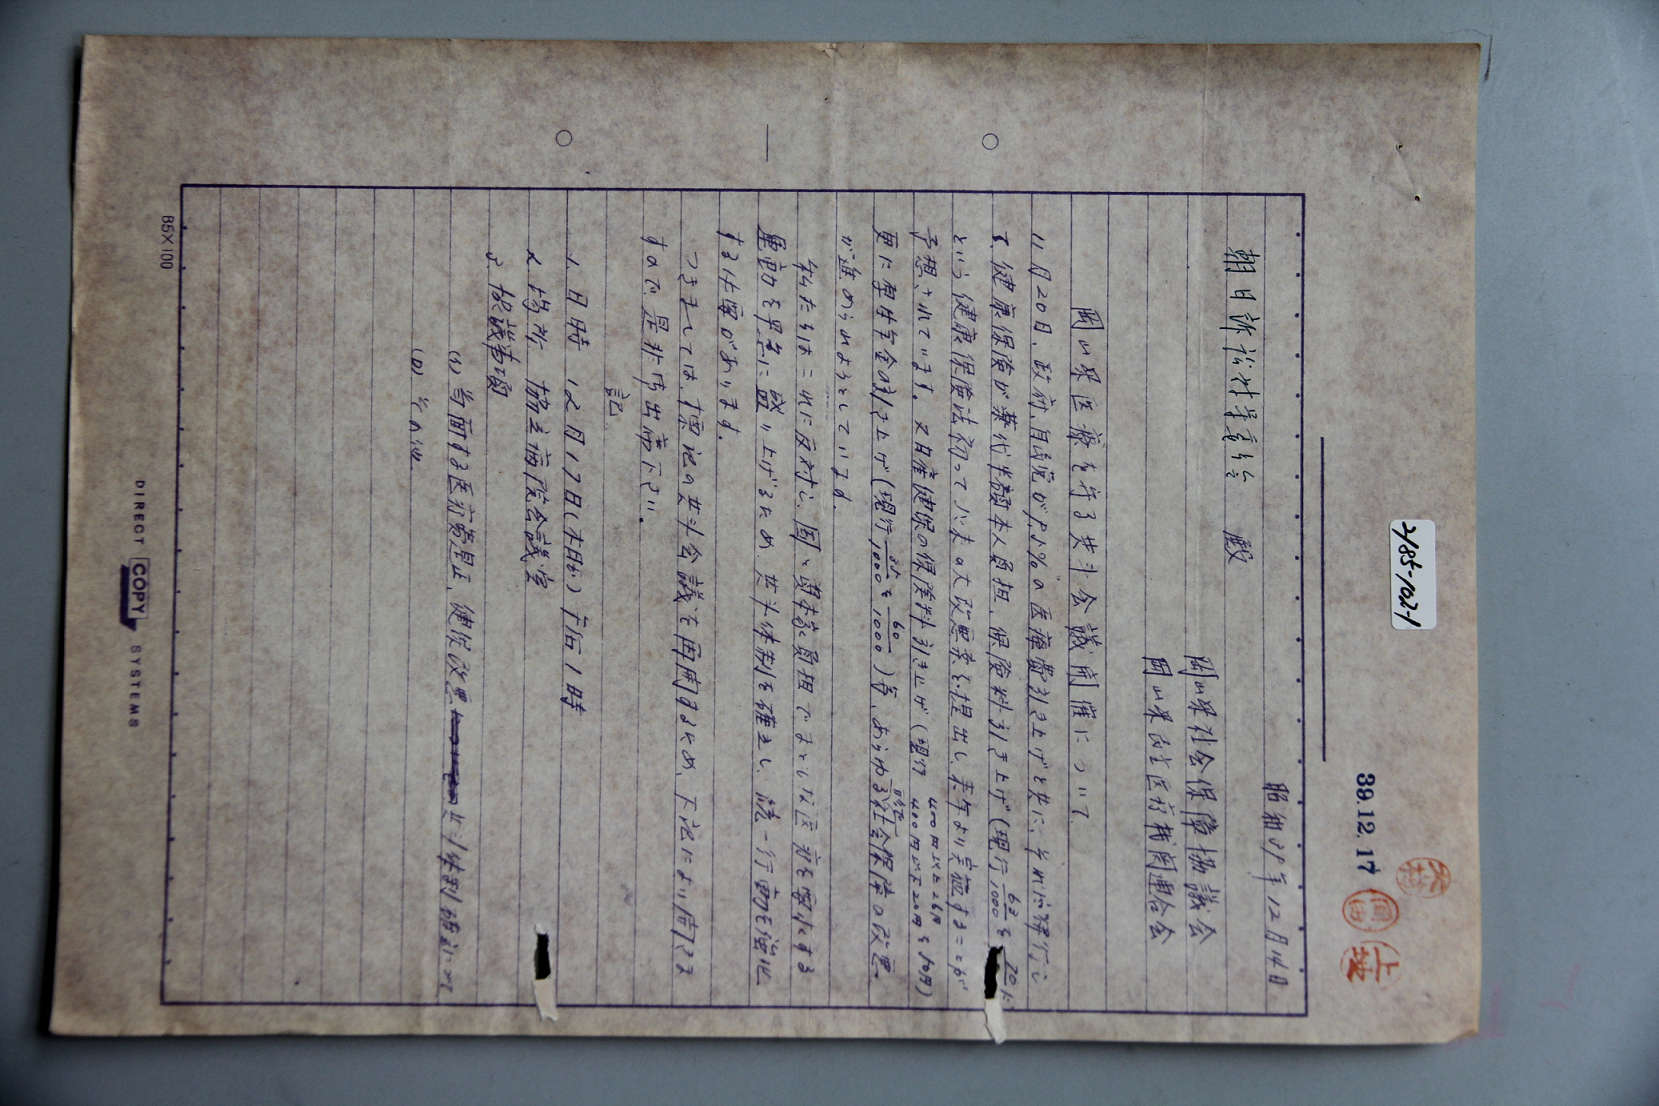 2185-102-1
39.12.17
大村
上坂
昭和39年12月14日
朝日訴訟対策委員会 殿
岡山県社会保障協議会
岡山県民主医療機関連合会
岡山県医療を守る共斗会議開催について
11月20日、政府、自民党が9.5%の医療費引き上げと共に、それに便乗行して
、健康保険が薬代半額本人負担、保険料引き上げ(現行63/1000を70/
という健康保険法初って以来の大改悪案を提出し、来年より実施することが
予想されています。又日雇健保の保険料引き上げ(現行 400円以上26円 400円以下20円を50円)
更に厚生年金の引き上げ(現行35/1000を60/1000)等、あらゆる社会保障の改悪
が進められようとしています。
私たちはこれに反対し、国、資本家負担でよりよい医療を要求する
運動を早急に盛り上げるため、共斗体制を確立し、統一行動を強化
する必要があります。
つきましては、標記の共斗会議を再開するため、下記により開きま
すので是非御出席下さい。
記
1. 日時 12月17日(木曜) 午后1時
2. 場所 協立病院会議室
3. 協議事項
(イ) 当面する医療費是正、健保改悪 共斗体制確立について
(ロ) その他
B5×100
DIRECT COPY SYSTEMS